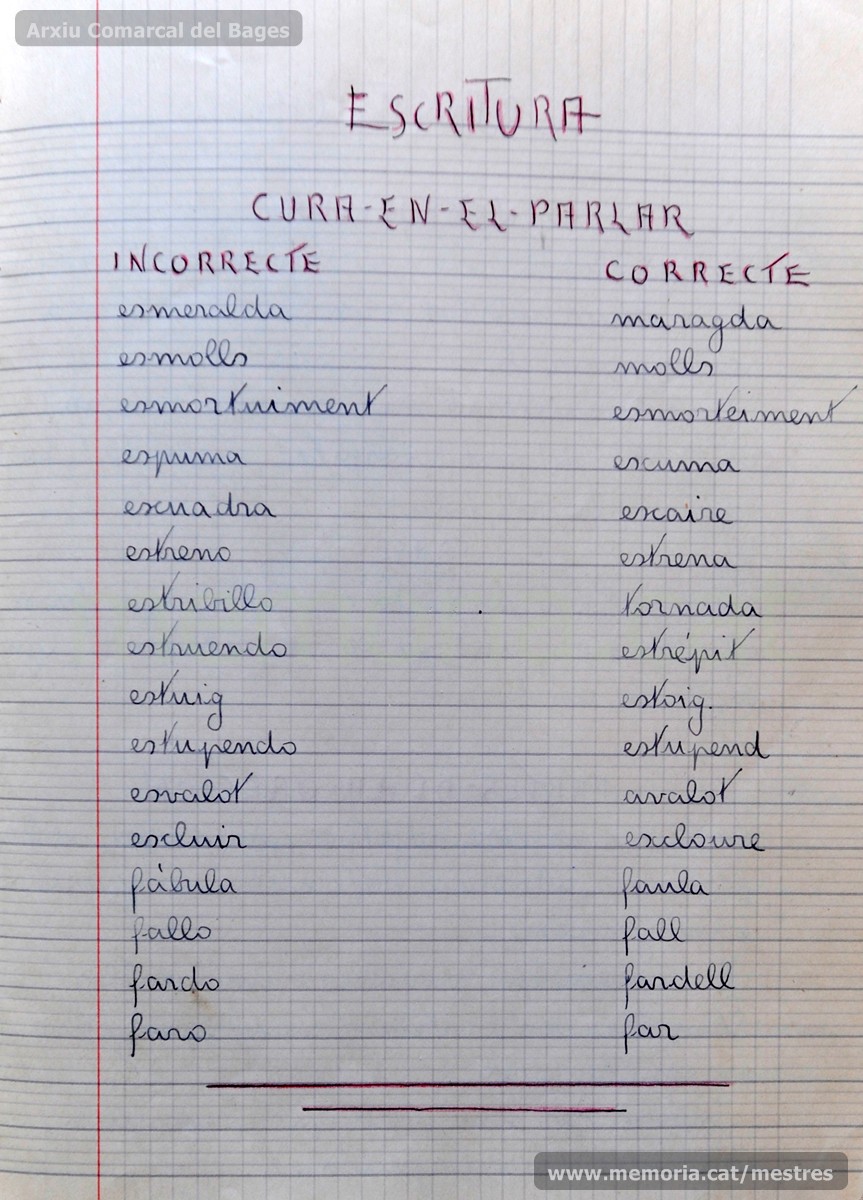 Arxiu Comarcal del Bages
ESCRITURA
CURA-EN-EL-PARLAR
INCORRECTE CORRECTE
esmeralda maragda
esmolls molls
esmortuiment esmorteiment
espuma escuma
escuadra escaire
estreno estrena
estribillo tornada
estruendo estrépit
estuig estoig.
estupendo estupend
esvalot avalot
escluir excloure
fábula faula
fallo fall
fardo fardell
faro far
www.memoria.cat/mestres